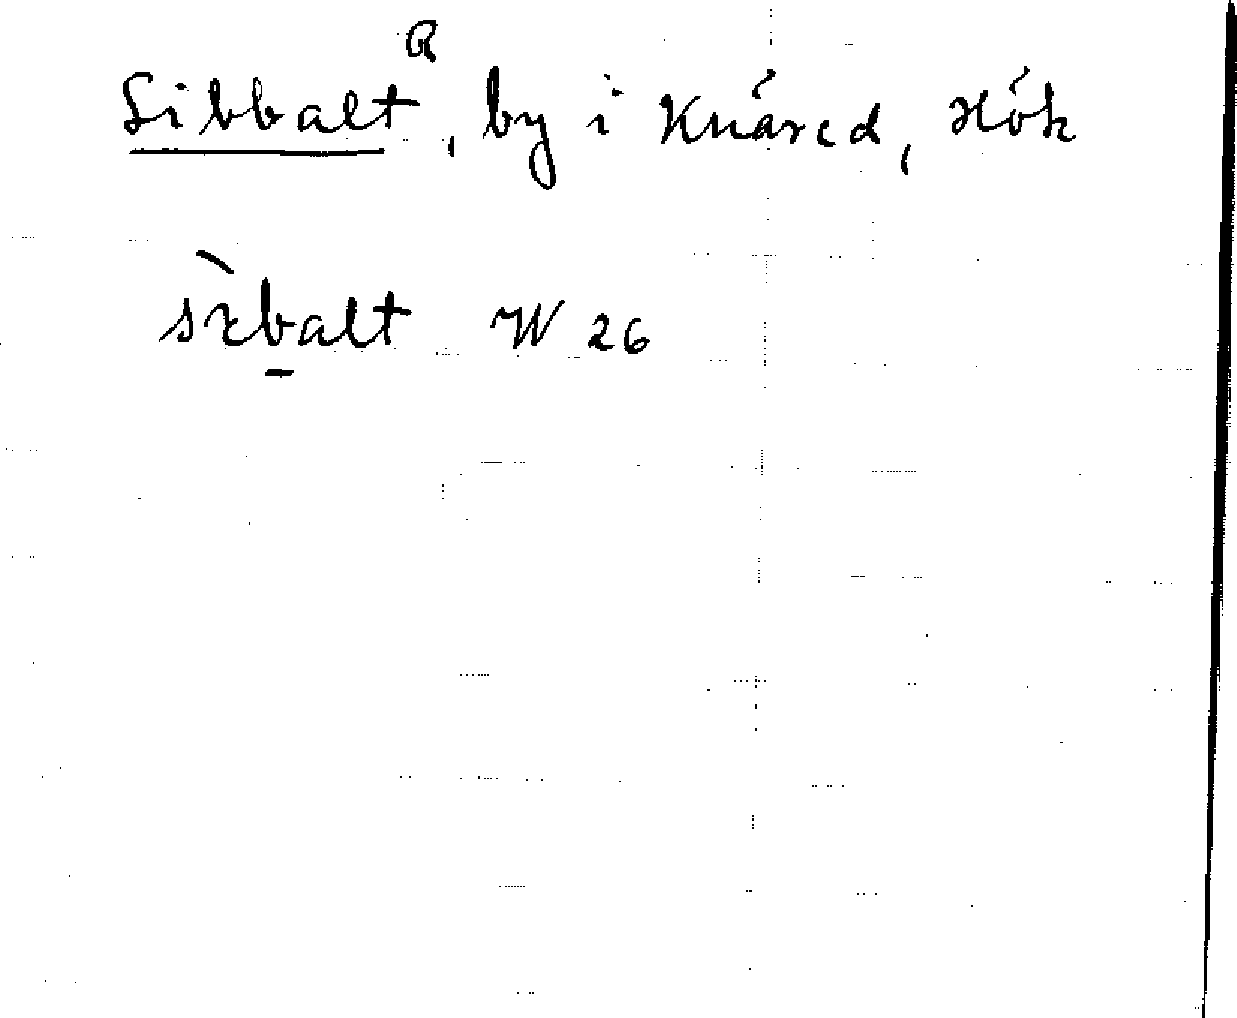 R
Sibbalt, by i Knäred, Hök
sìbalt W 26